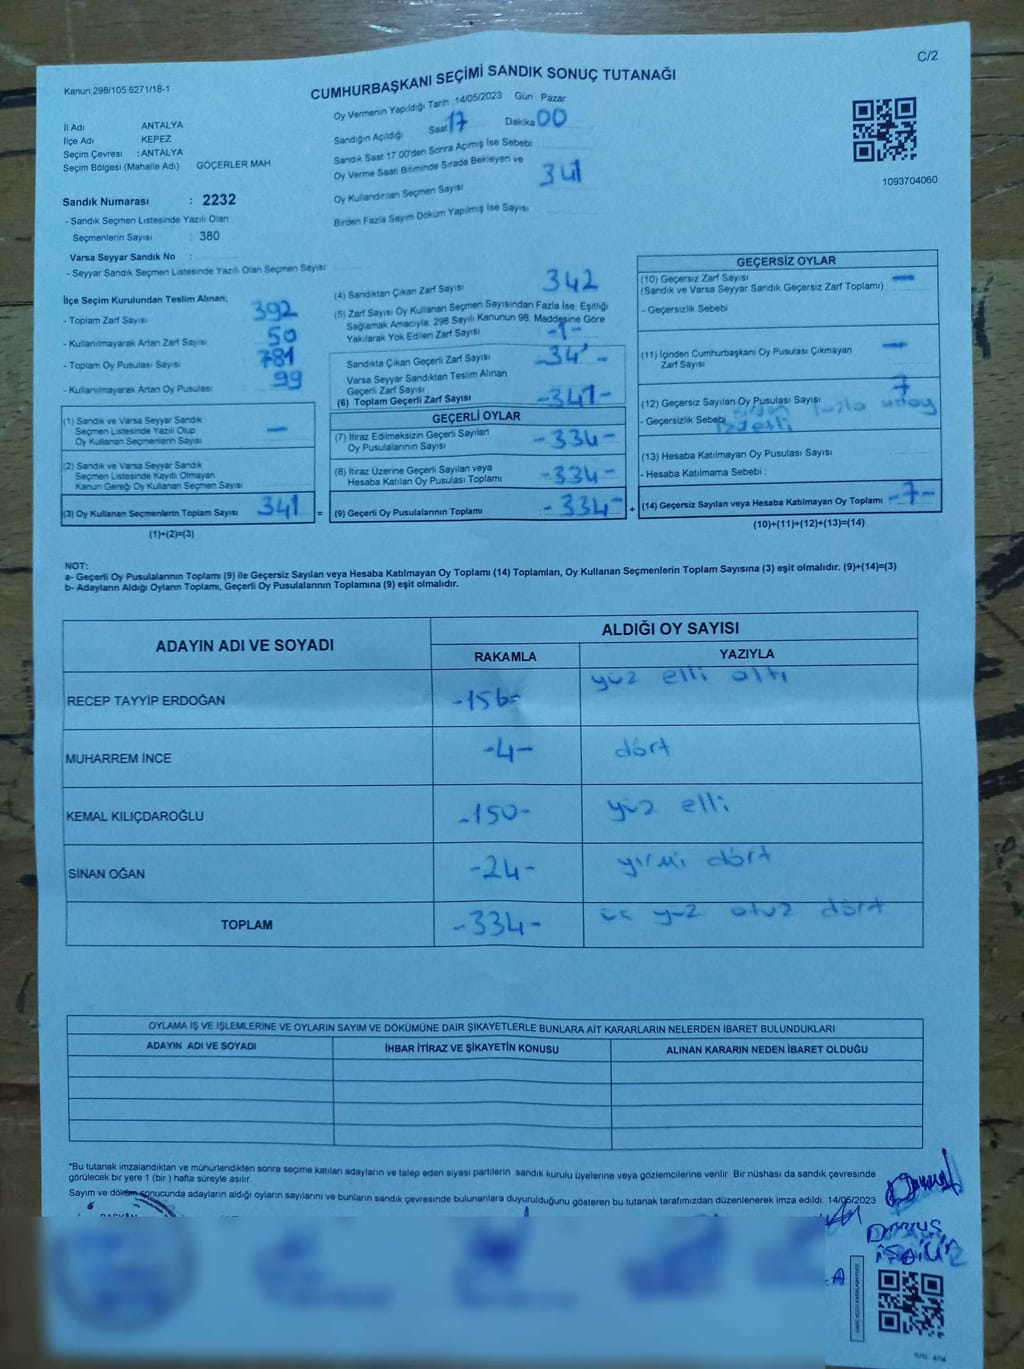 C/2
Kanun:298/105,6271/18-1
CUMHURBAŞKANI SEÇİMİ SANDIK SONUÇ TUTANAĞI
Oy Vermenin Yapıldığı Tarih :14/05/2023 Gün : Pazar
Sandığın Açıldığı Saat 17 Dakika 00
Sandık Saat 17:00'den Sonra Açımış İse Sebebi
Oy Verme Saati Bitiminde Sırada Bekleyen ve
Oy Kullandırılan Seçmen Sayısı 341
Birden Fazla Sayım Döküm Yapılmış İse Sayısı
İl Adı ANTALYA
İlçe Adı KEPEZ
Seçim Çevresi : ANTALYA
Seçim Bölgesi (Mahalle Adı) GÖÇERLER MAH
1093704060
Sandık Numarası : 2232
- Sandık Seçmen Listesinde Yazılı Olan
Seçmenlerin Sayısı : 380
Varsa Seyyar Sandık No :
- Seyyar Sandık Seçmen Listesinde Yazılı Olan Seçmen Sayısı:
İlçe Seçim Kurulundan Teslim Alınan;
- Toplam Zarf Sayısı 392
- Kullanılmayarak Artan Zarf Sayısı 50
- Toplam Oy Pusulası Sayısı 781
- Kullanılmayarak Artan Oy Pusulası 99
(1) Sandık ve Varsa Seyyar Sandık
Seçmen Listesinde Yazılı Olup
Oy Kullanan Seçmenlerin Sayısı —
(2) Sandık ve Varsa Seyyar Sandık
Seçmen Listesinde Kayıtlı Olmayan
Kanun Gereği Oy Kullanan Seçmen Sayısı
(3) Oy Kullanan Seçmenlerin Toplam Sayısı 341
(1)+(2)=(3)
(4) Sandıktan Çıkan Zarf Sayısı 342
(5) Zarf Sayısı Oy Kullanan Seçmen Sayısından Fazla İse, Eşitliği
Sağlamak Amacıyla; 298 Sayılı Kanunun 98. Maddesine Göre
Yakılarak Yok Edilen Zarf Sayısı -1-
Sandıkta Çıkan Geçerli Zarf Sayısı
Varsa Seyyar Sandıktan Teslim Alınan
Geçerli Zarf Sayısı
(6) Toplam Geçerli Zarf Sayısı -341-
GEÇERLİ OYLAR
(7) İtiraz Edilmeksizin Geçerli Sayılan
Oy Pusulalarının Sayısı -334-
(8) İtiraz Üzerine Geçerli Sayılan veya
Hesaba Katılan Oy Pusulası Toplamı -334-
=
(9) Geçerli Oy Pusulalarının Toplamı -334-
+
GEÇERSİZ OYLAR
(10) Geçersiz Zarf Sayısı —
(Sandık ve Varsa Seyyar Sandık Geçersiz Zarf Toplamı)
- Geçersizlik Sebebi
(11) İçinden Cumhurbaşkanı Oy Pusulası Çıkmayan —
Zarf Sayısı
(12) Geçersiz Sayılan Oy Pusulası Sayısı 7
- Geçersizlik Sebebi fazla
(13) Hesaba Katılmayan Oy Pusulası Sayısı
- Hesaba Katılmama Sebebi :
(14) Geçersiz Sayılan veya Hesaba Katılmayan Oy Toplamı -7-
(10)+(11)+(12)+(13)=(14)
NOT:
a- Geçerli Oy Pusulalarının Toplamı (9) ile Geçersiz Sayılan veya Hesaba Katılmayan Oy Toplamı (14) Toplamları, Oy Kullanan Seçmenlerin Toplam Sayısına (3) eşit olmalıdır. (9)+(14)=(3)
b- Adayların Aldığı Oyların Toplamı, Geçerli Oy Pusulalarının Toplamına (9) eşit olmalıdır.
ADAYIN ADI VE SOYADI ALDIĞI OY SAYISI
RAKAMLA YAZIYLA
RECEP TAYYİP ERDOĞAN -156- yüz elli altı
MUHARREM İNCE -4- dört
KEMAL KILIÇDAROĞLU -150- yüz elli
SİNAN OĞAN -24- yirmi dört
TOPLAM -334- üç yüz otuz dört
OYLAMA İŞ VE İŞLEMLERİNE VE OYLARIN SAYIM VE DÖKÜMÜNE DAİR ŞİKAYETLERLE BUNLARA AİT KARARLARIN NELERDEN İBARET BULUNDUKLARI
ADAYIN ADI VE SOYADI İHBAR İTİRAZ VE ŞİKAYETİN KONUSU ALINAN KARARIN NEDEN İBARET OLDUĞU
*Bu tutanak imzalandıktan ve mühürlendikten sonra seçime katılan adayların ve talep eden siyasi partilerin sandık kurulu üyelerine veya gözlemcilerine verilir. Bir nüshası da sandık çevresinde
görülecek bir yere 1 (bir) hafta süreyle asılır.
Sayım ve döküm sonucunda adayların aldığı oyların sayılarını ve bunların sandık çevresinde bulunanlara duyurulduğunu gösteren bu tutanak tarafımızdan düzenlenerek imza edildi. 14/05/2023
BAŞKAN